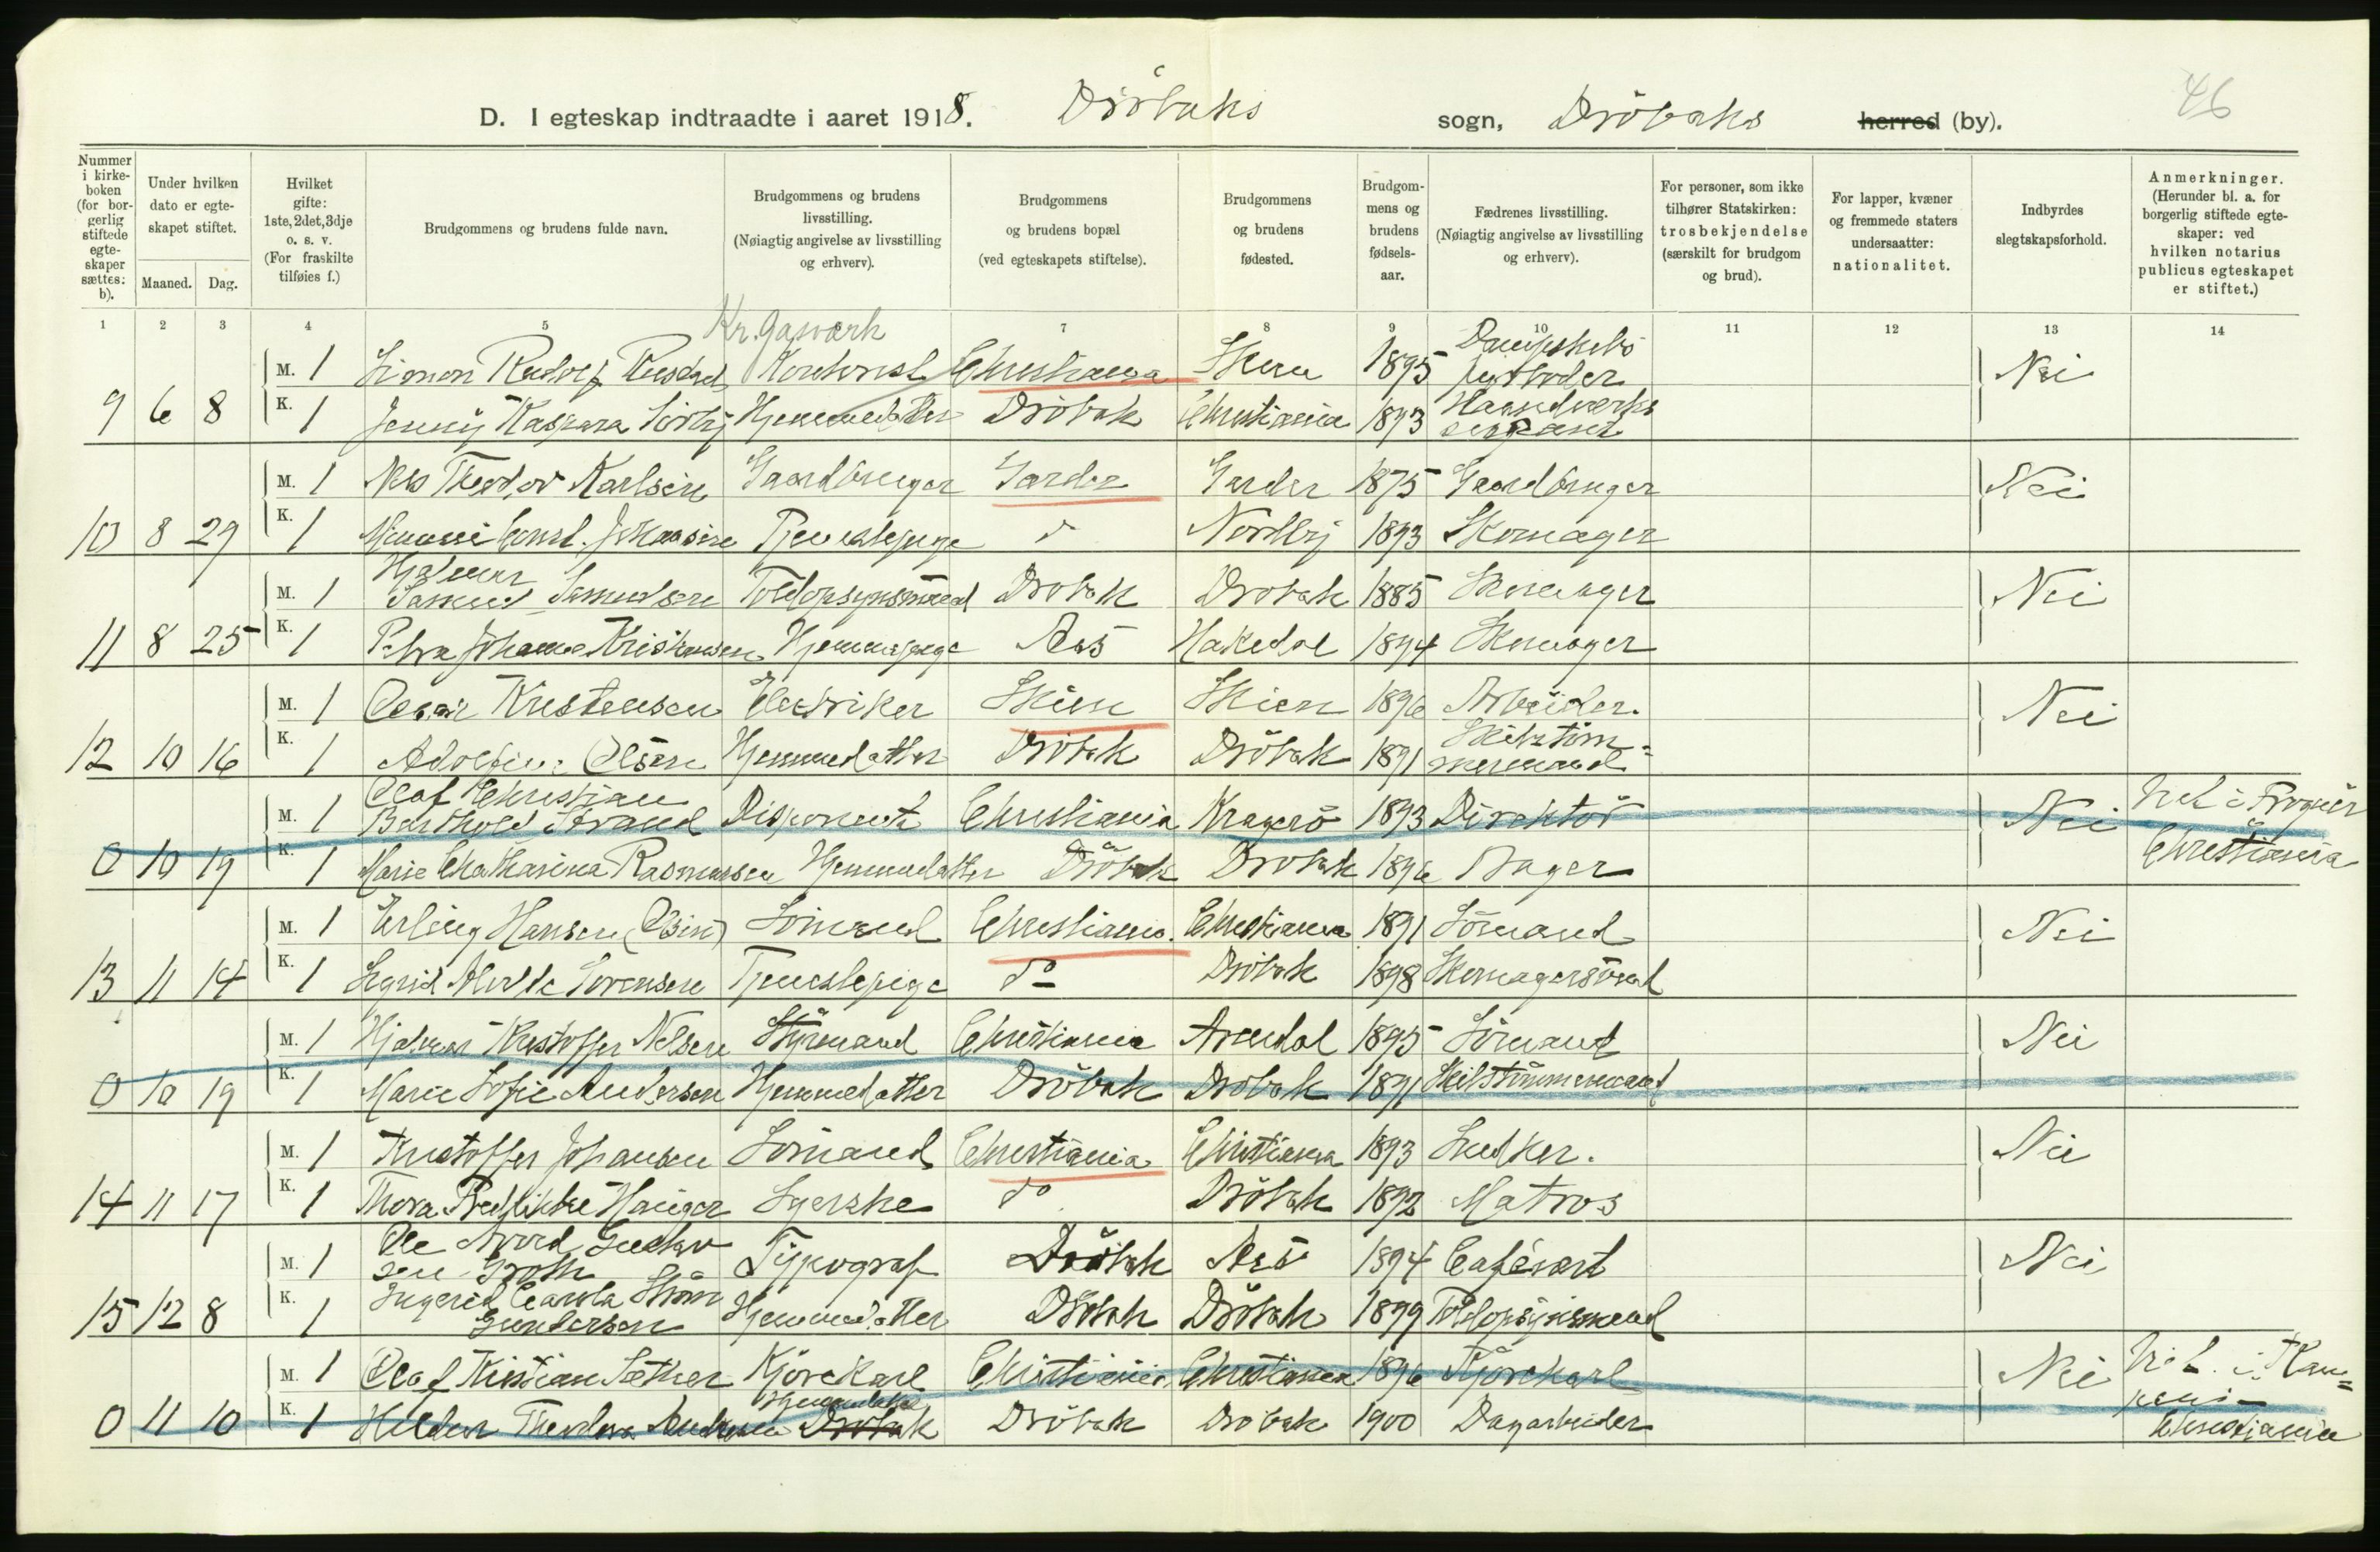 46
D. I egteskap indtraadte i aaret 1918. Dröbaks sogn, Dröbaks herred (by).
Nummer i kirke-boken (for bor-gerlig stiftede egte-skaper sættes: b).
Under hvilken dato er egte-skapet stiftet.
Maaned. Dag.
Hvilket gifte: 1ste, 2det, 3dje o. s. v. (For fraskilte tilføies f.)
Brudgommens og brudens fulde navn.
Brudgommens og brudens livsstilling. (Nøiagtig angivelse av livsstilling og erhverv).
Brudgommens og brudens bopæl (ved egteskapets stiftelse).
Brudgommens og brudens fødested.
Brudgom-mens og brudens fødsels-aar.
Fædrenes livsstilling. (Nøiagtig angivelse av livsstilling og erhverv).
For personer, som ikke tilhører Statskirken: trosbekjendelse (særskilt for brudgom og brud).
For lapper, kvæner og fremmede staters undersaatter: nationalitet.
Indbyrdes slegtskapsforhold.
Anmerkninger. (Herunder bl. a. for borgerlig stiftede egte-skaper: ved hvilken notarius publicus egteskapet er stiftet.)
1 2 3 4 5 7 8 9 10 11 12 13 14
Kr. Gasværk
M. 1 Simon Rudolf Kontorist Christiania 1895 Dampskibs Nei
9 6 8 K. 1 Jenny Kaspara Sörby Hjemmedatter Dröbak Christiania 1893 Haandverks
M. 1 Nils Theodor Karlsen Gaardbruger Garder Garder 1875 Gaardbruger Nei
10 8 29 K. 1 Johansen Tjenestepige d Nordby 1893 Skomager
Hjalmar
M. 1 Samuelsen Toldopsynsmand Drobak Drobak 1885 Skomager Nei
11 8 25 K. 1 Petra Johanne Kristiansen Hjemmepige Aas Hakedal 1894 Skomager
M. 1 Oscar Kristensen Elektriker Skien Skien 1896 Arbeider. Nei
12 10 16 K. 1 Adolfine Olsen Hjemmedatter Dröbak Dröbak 1891 Skibstöm-mermand
Olaf Christian
M. 1 Barthold Strand Disponent Christiania Kragerö 1893 Direktör Nei i Frogner
0 10 19 K. 1 Marie Chatharina Rasmussen Hjemmedatter Dröbak Drobak 1896 Bager Christiania
M. 1 Erling Hansen Sömand Christiania. Christiania 1891 Sömand Nei
13 11 14 K. 1 Sigrid Sörensen Tjenestepige do Dröbak 1898 Skomagersvend
M. 1 Hjalmar Kristoffer Nilsen Styrmand Christiania Arendal 1895 Sömand Nei
0 10 19 K. 1 Marie Sofie Andersen Hjemmedatter Dröbak Drobak 1891 Skibstömmermand
M. 1 Kristoffer Johansen Sömand Christiania Christiania 1893 Snedker. Nei
14 11 17 K. 1 Thora Fredrikke Hauger Syerske do Dröbak 1892 Matros
M. 1 Ole Gustav-sen Groth Typograf Dröbak Aas 1894 Cafévert Nei
15 12 8 K. 1 Ingerid Carola Gundersen Hjemmedatter Dröbak Dröbak 1899 Toldopsynsmand
M. 1 Olaf Kristian Sæther Kjörekarl Christiania Christiania 1896 Kjörekarl Nei Viet i Kam=
Hjemmedatter
0 11 10 K. 1 Theodora Andresen Drobak Dröbak Drobak 1900 Dagarbeider pen i
Christiania